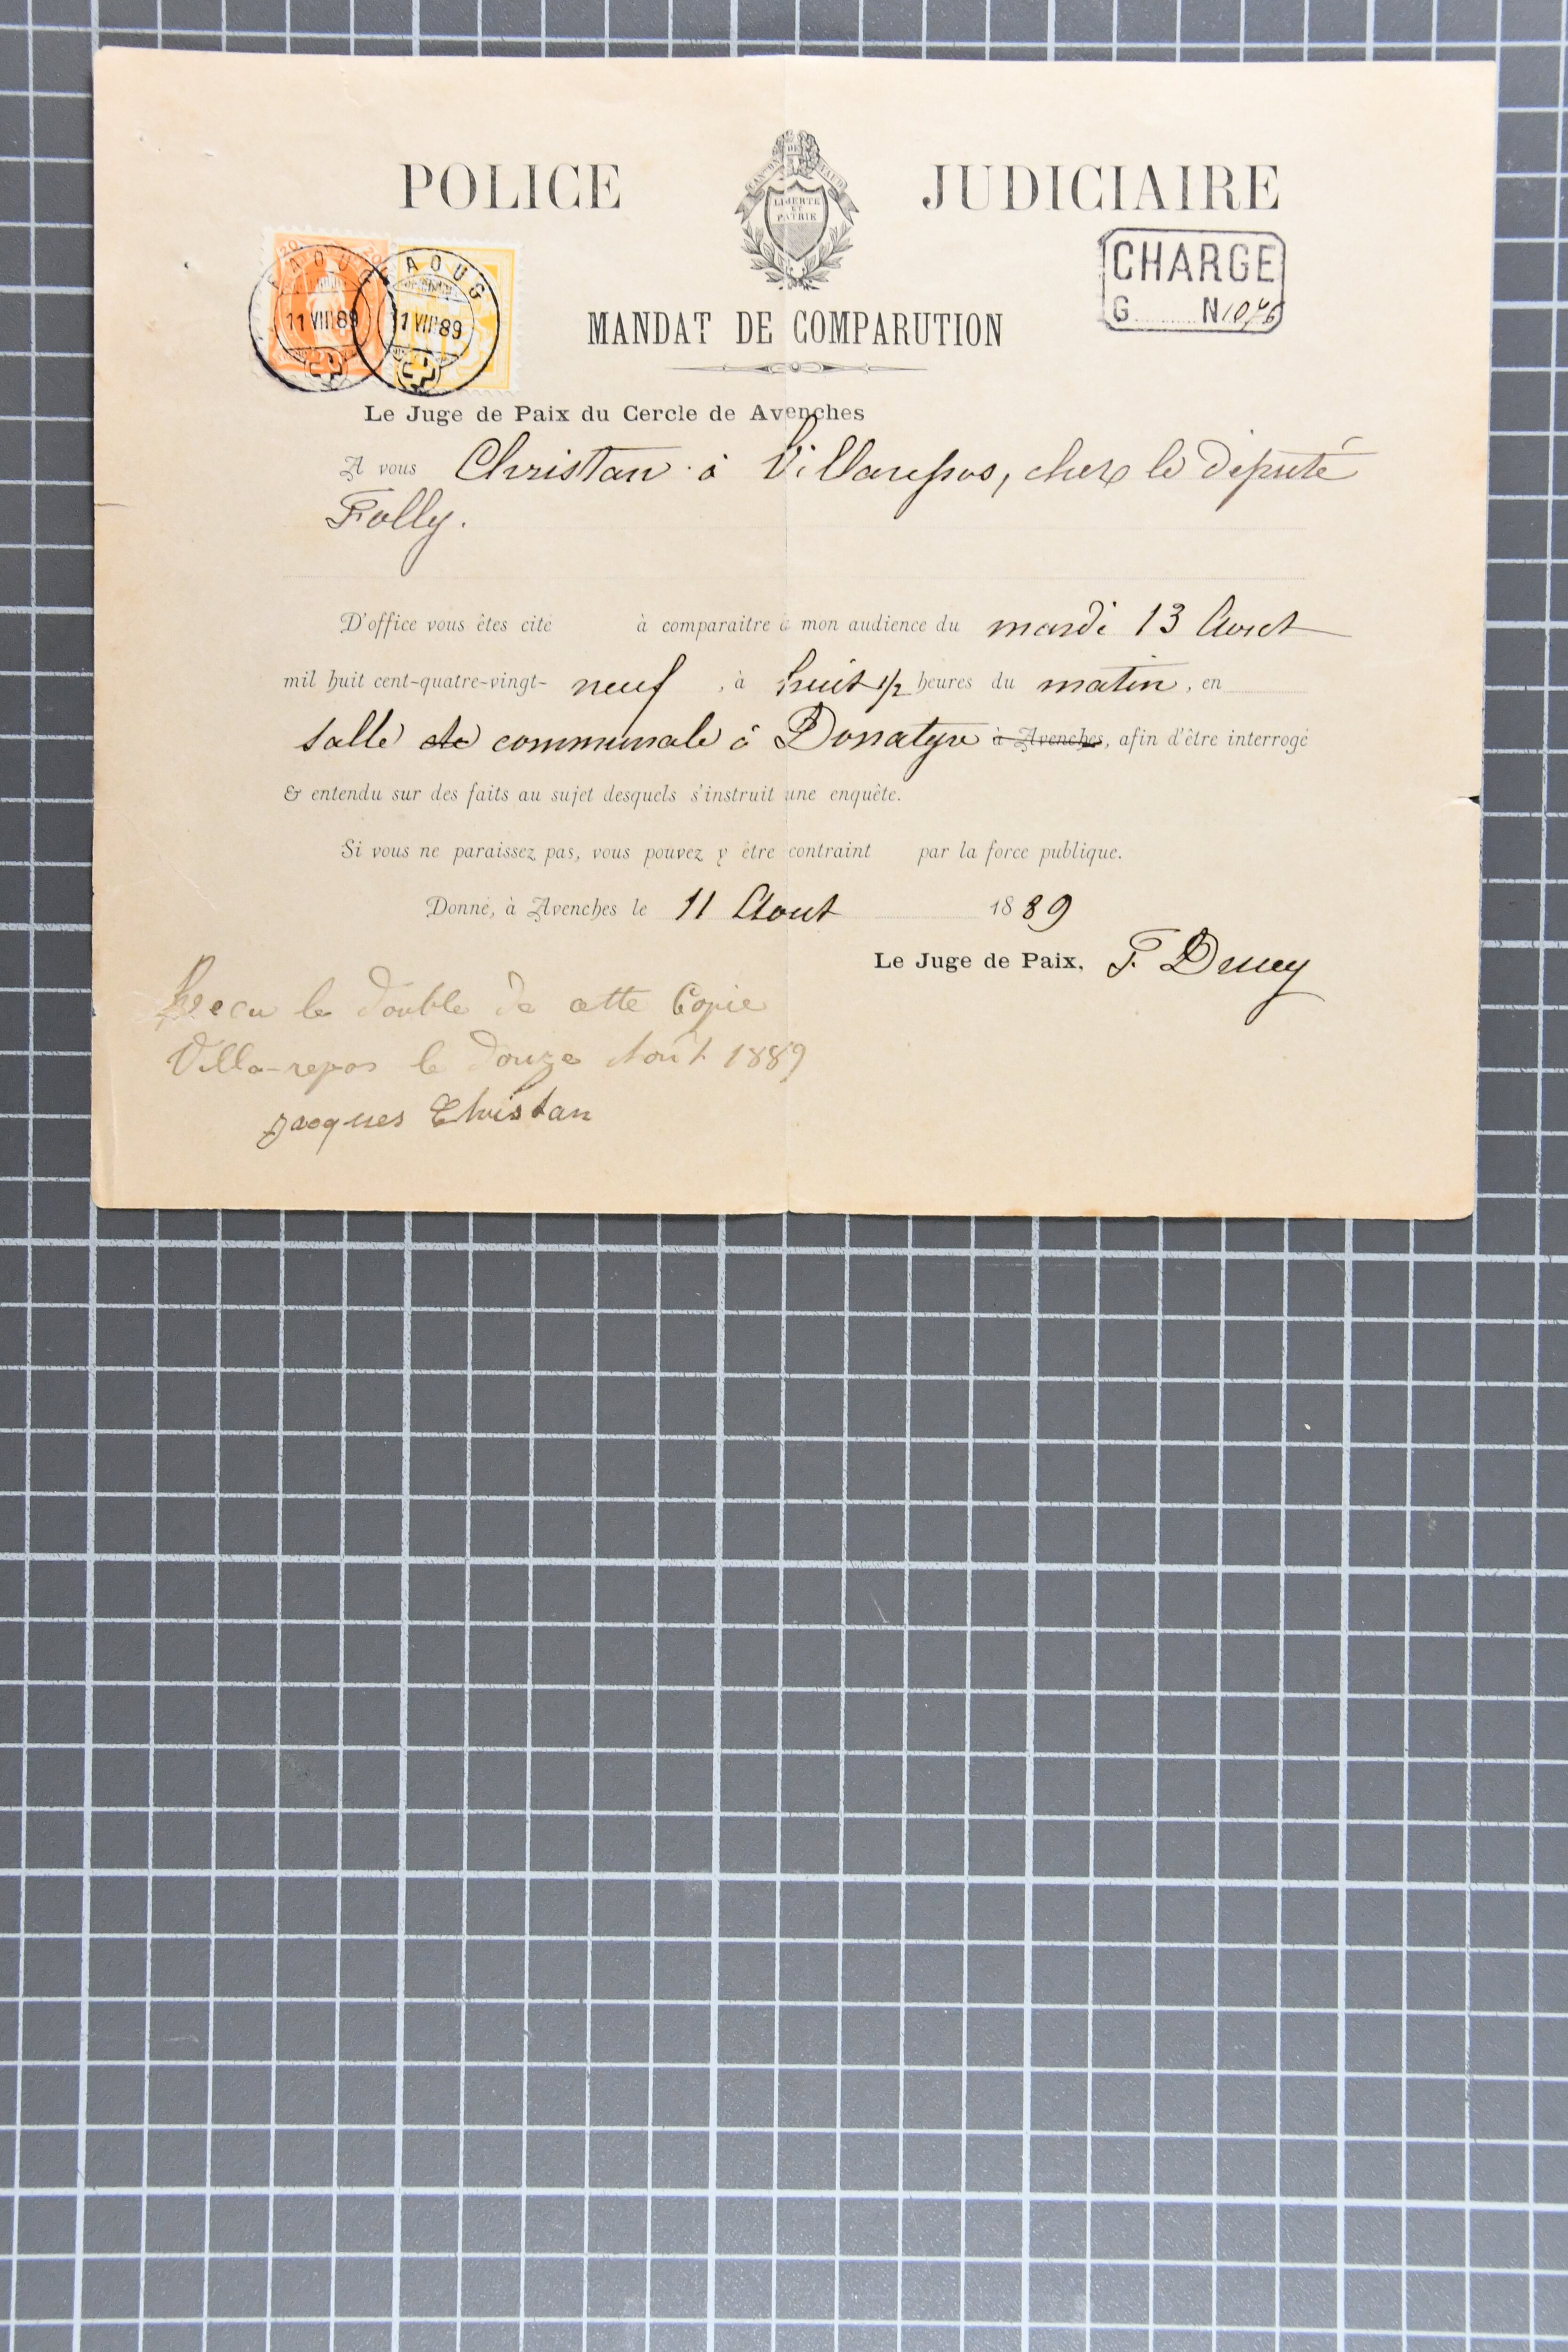 POLICE JUDICIAIRE
CANTON DE VAUD
LIBERTÉ
ET
PATRIE
20 20
FAOUG FAOUG
11 VIII 89 11 VIII 89
CHARGÉ
G. N 1076
MANDAT DE COMPARUTION
Le Juge de Paix du Cercle de Avenches
A vous Christan à Villarepos, chez le député
Folly.
D'office vous êtes cité à comparaitre à mon audience du mardi 13 Aout
mil huit cent-quatre-vingt- neuf, à huit 1/2 heures du matin, en
salle de communale à Donatyre à Avenches, afin d'être interrogé
& entendu sur des faits au sujet desquels s'instruit une enquête.
Si vous ne paraissez pas, vous pouvez y être contraint par la force publique.
Donné, à Avenches le 11 Aout 1889
Le Juge de Paix, F.
Recu le double de cette Copie
Villa-repos le douze Août 1889
Jacques Christan